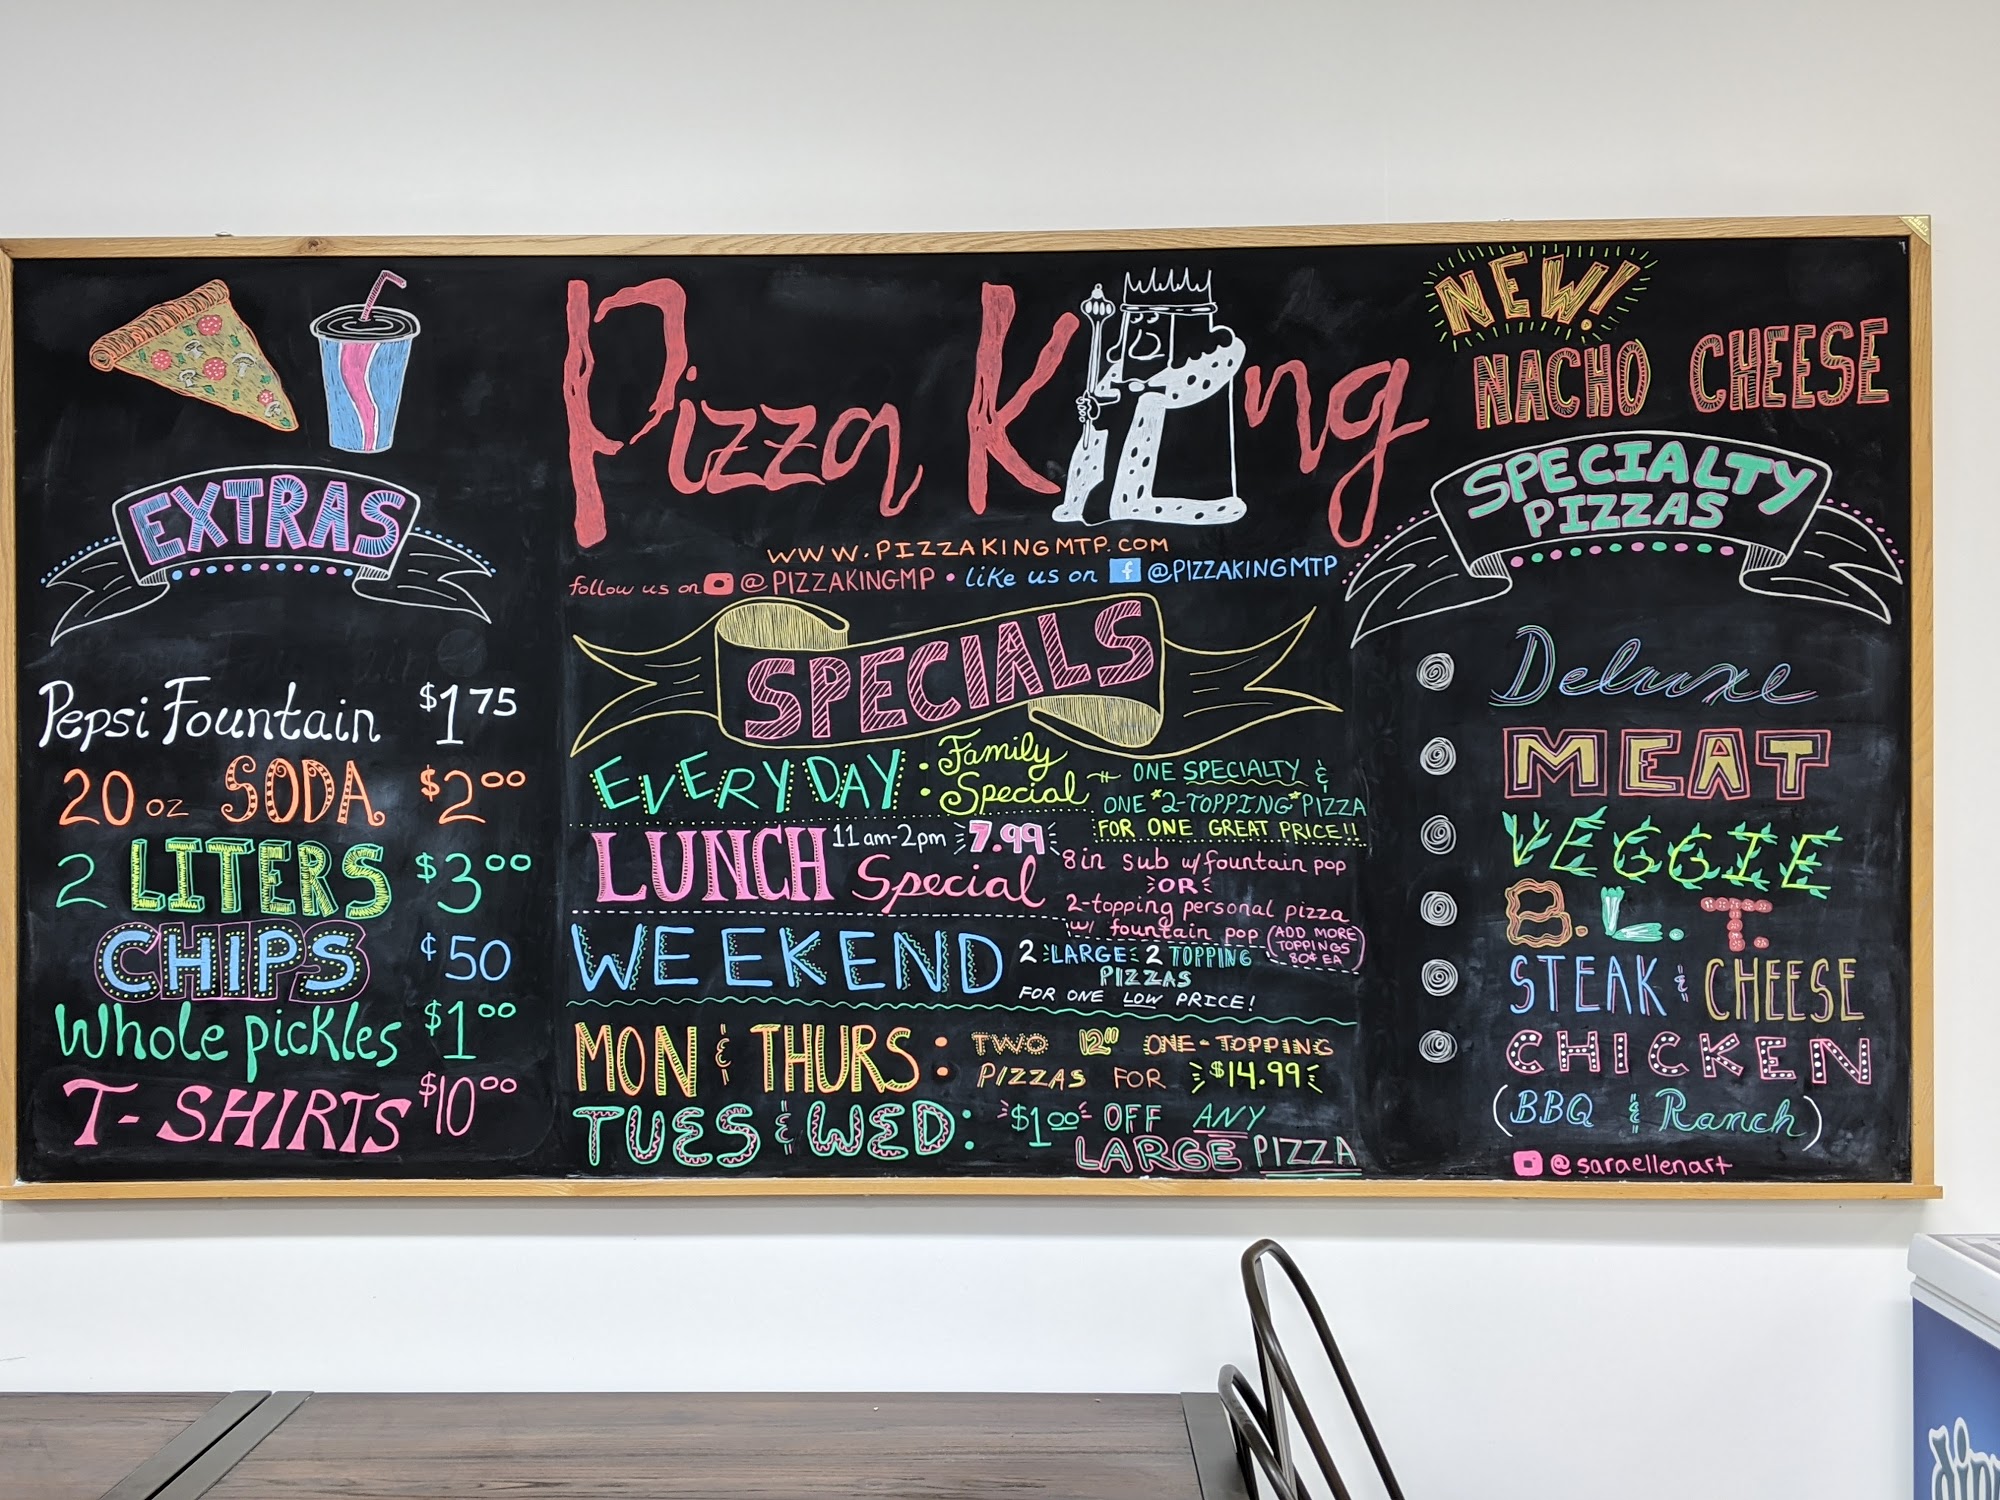 Pizza King
WWW.PIZZAKINGMTP.COM
follow us on @PIZZAKINGMP • like us on f @PIZZAKINGMTP
EXTRAS
Pepsi Fountain $1 75
20 oz SODA $2 00
2 LITERS $3 00
CHIPS ¢50
Whole pickles $1 00
T-SHIRTS $10 00
SPECIALS
EVERYDAY: Family Special
ONE SPECIALTY &
ONE *2-TOPPING* PIZZA
FOR ONE GREAT PRICE!!
LUNCH Special 11am-2pm 7.99
8in sub w/fountain pop
OR
2-topping personal pizza
w/ fountain pop
(ADD MORE
TOPPINGS
80¢ EA)
WEEKEND
2 LARGE 2 TOPPING
PIZZAS
FOR ONE LOW PRICE!
MON & THURS: TWO 12" ONE-TOPPING
PIZZAS FOR $14.99
TUES & WED: $1 00 OFF ANY
LARGE PIZZA
NEW!
NACHO CHEESE
SPECIALTY
PIZZAS
Deluxe
MEAT
VEGGIE
B.L.T.
STEAK & CHEESE
CHICKEN
(BBQ & Ranch)
@saraellenart